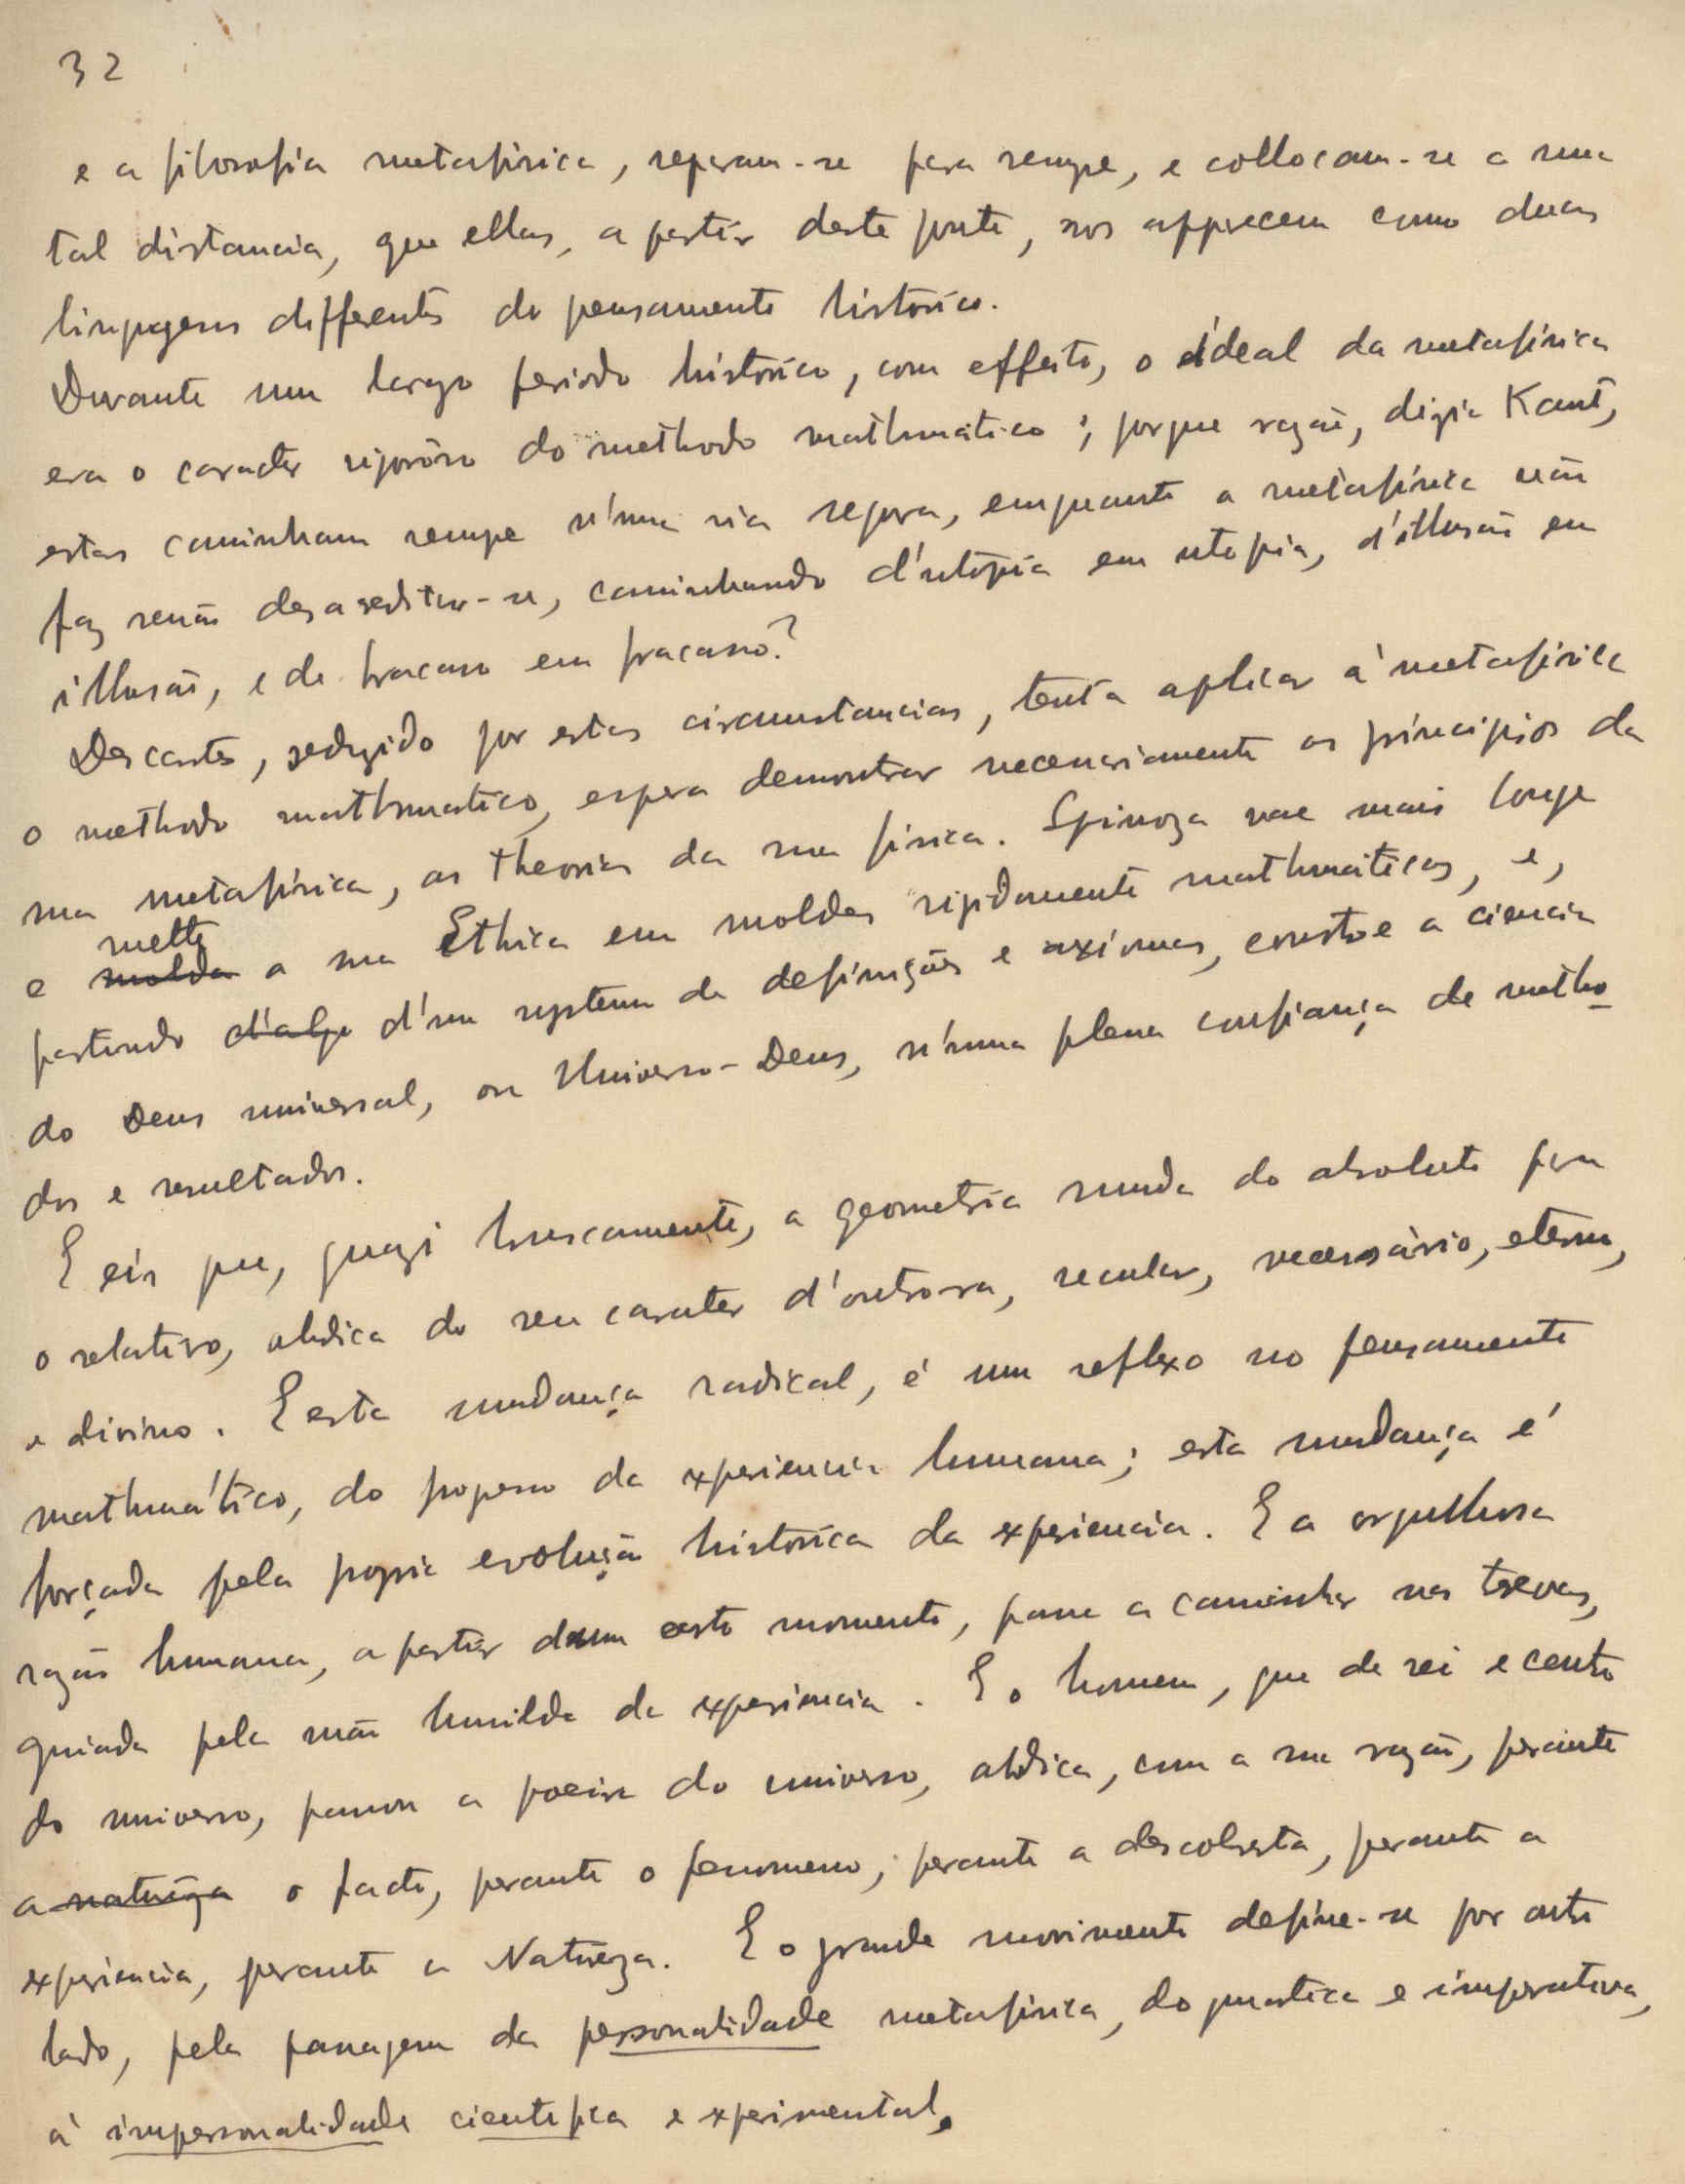 32
e a filosofia metafisica, separam-se para sempre, e collocam-se a uma
tal distancia, que ellas, a partir deste ponto, nos apparecem como duas
linguagens differentes do pensamento historico.
Durante um largo periodo historico, com effeito, o ideal da metafisica
era o caracter rigoroso do methodo mathmatico; porque razão, dizia Kant,
estas caminham sempre n'uma via segura, emquanto a metafisica não
faz senão desacreditar-se, caminhando d'utopia em utopia, d'illusão em
illusão, e de fracasso em fracasso?
Descartes, seduzido por estas circumstancias, tenta aplicar á metafisica
o methodo mathmatico, espera demonstrar necessariamente os principios da
sua metafisica, as theorias da sua fisica. Spinoza vae mais longe
e molda mette a sua Ethica em moldes rigidamente mathmáticos, e,
partindo d'alg d'um systema de definições e axiomas, constroe a ciencia
do Deus universal, ou Universo-Deus, n'uma plena confiança de metho-
dos e resultados.
E eis que, quazi bruscamente, a geometria muda do absoluto para
o relativo, abdica do seu caracter d'outrora, secular, necessário, eterno,
e divino. E esta mudança radical, é um reflexo no pensamento
mathmático, do progresso da experiencia humana; esta mudança é
forçada pela propria evolução historica da experiencia. E a orgulhosa
razão humana, a partir dum certo momento, passa a caminhar nas trevas,
guiada pela mão humilde da experiencia. E o homem, que de rei e centro
do universo, passou a poeira do universo, abdica, com a sua razão, perante
a natureza o facto, perante o fenomeno, perante a descoberta, perante a
experiencia, perante a Natureza. E o grande movimento define-se por outro
lado, pela passagem da personalidade metafisica, dogmatica e imperativa,
á impersonalidade cientifica e experimental.